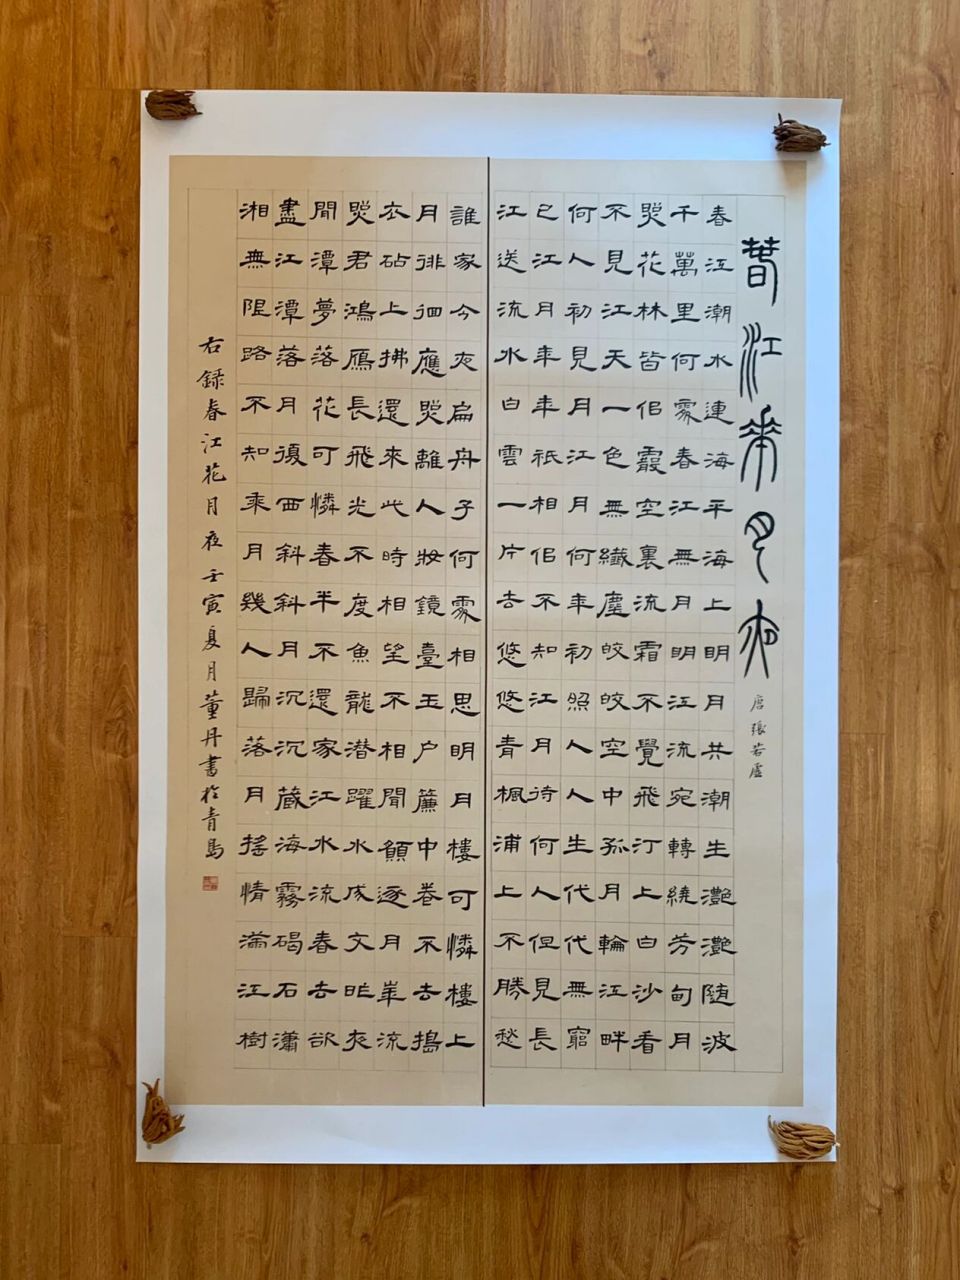 萅江華月夜
唐張若虛
春江潮水連海平海上明月共潮生灧灧随波
千萬里何處春江無月明江流宛轉繞芳甸月
照花林皆佀霰空裏流霜不覺飛汀上白沙看
不見江天一色無纖塵皎皎空中孤月輪江畔
何人初見月江月何年初照人人生代代無窮
已江月年年衹相佀不知江月待何人但見長
江送流水白雲一片去悠悠青楓浦上不勝愁
誰家今夜扁舟子何處相思明月樓可憐樓上
月徘徊應照離人妝鏡臺玉户簾中卷不去搗
衣砧上拂還來此時相望不相聞願逐月華流
照君鴻鴈長飛光不度魚龍潜躍水成文昨夜
閒潭夢落花可憐春半不還家江水流春去欲
盡江潭落月復西斜斜月沉沉藏海霧碣石瀟
湘無限路不知乘月幾人歸落月搖情滿江樹
右録春江花月夜壬寅夏月董丹書於青島